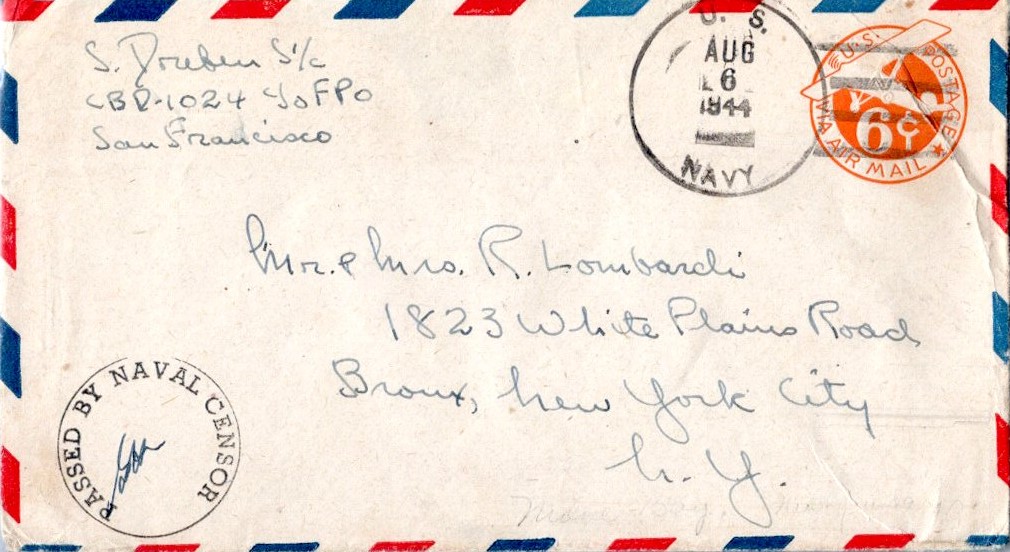 S. Dreben S1/c
CBD-1024 c/o FPO
San Francisco
U. S.
AUG
6
1944
NAVY
U.S. POSTAGE
6¢
VIA AIR MAIL
Mr. & Mrs. R. Lombardi
1823 White Plains Road
Bronx, New York City
N. Y.
PASSED BY NAVAL CENSOR